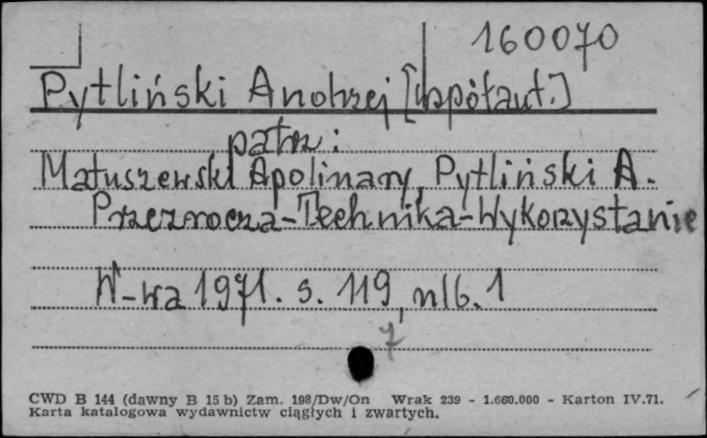 160070
Pytliński Andrzej [współaut.]
patrz:
Matuszewski Apolinary, Pytliński A.
Przezrocza-Technika-Wykorzystanie
W-wa 1971. s. 119, nlb. 1
7
CWD B 144 (dawny B 15 b) Zam. 198/Dw/On Wrak 239 - 1.660.000 - Karton IV.71.
Karta katalogowa wydawnictw ciągłych i zwartych.